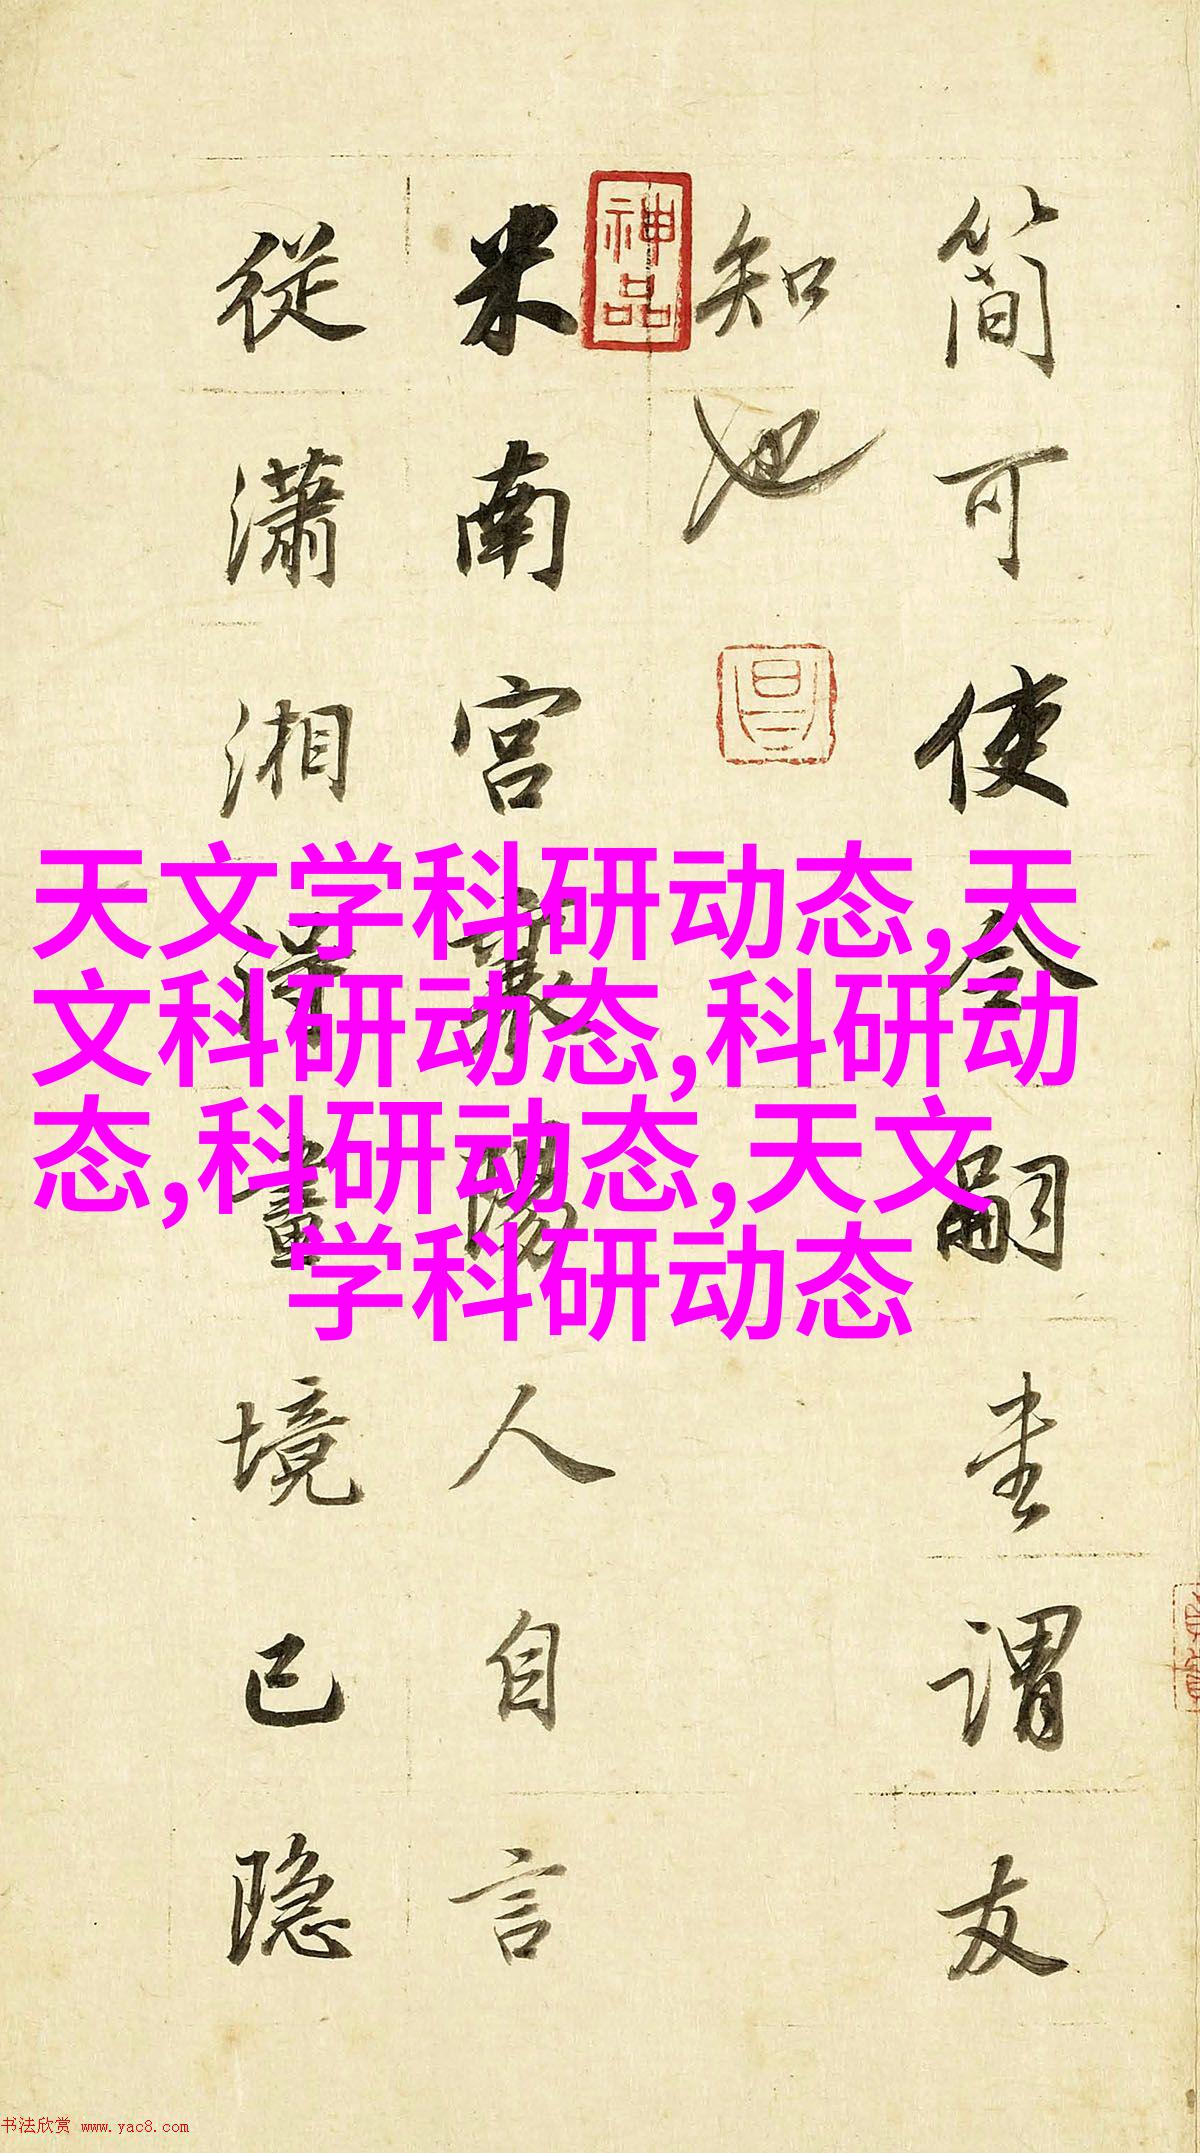 簡可使令嗣謂友
知也
米南宮襄陽人自言
從瀟湘得畫境已隐
神品
天文学科研动态,天
文科研动态,科研动
态,科研动态,天文
学科研动态
书法欣赏 www.yac8.com